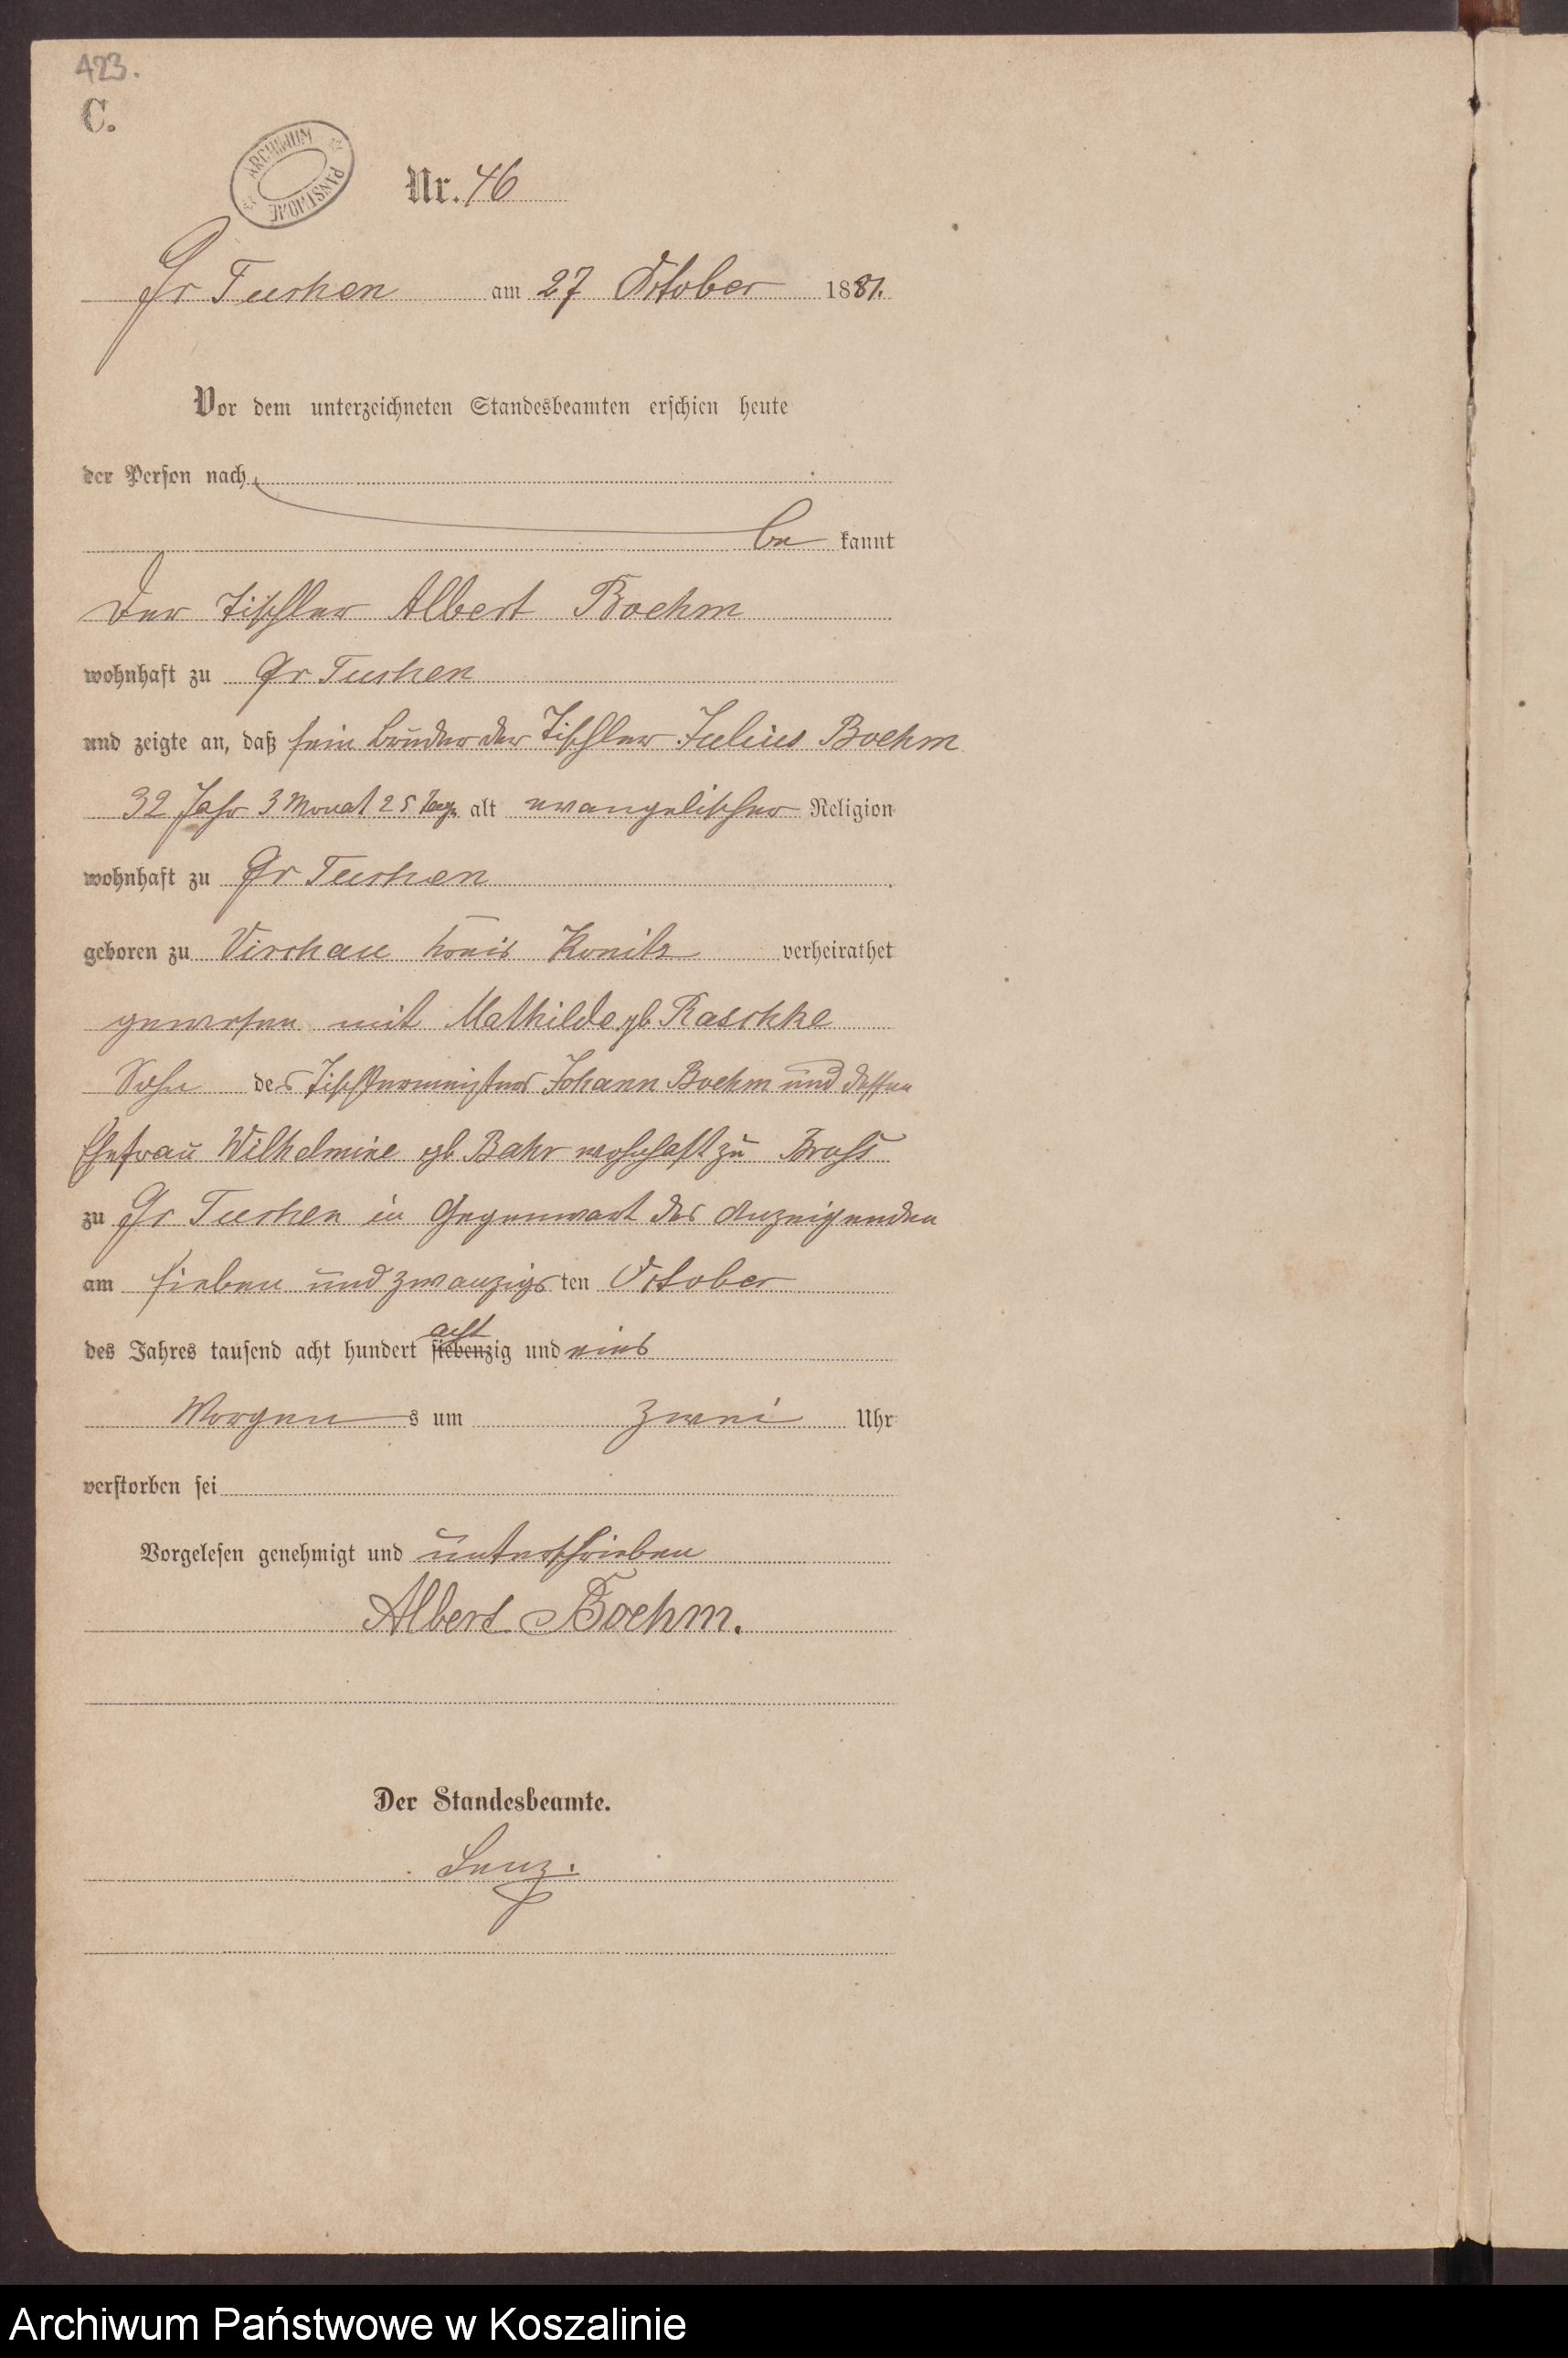 423.
C.
ARCHIWUM PAŃSTWOWE
Nr. 46
Gr Tuchen am 27 October 1881.
Vor dem unterzeichneten Standesbeamten erschien heute
der Person nach
be kannt
Der Tischler Albert Boehm
wohnhaft zu Gr Tuchen
und zeigte an, daß sein Bruder der Tischler Julius Boehm
32 Jahr 3 Monat 25 Tage alt evangelischer Religion
wohnhaft zu Gr Tuchen
geboren zu Virchau Kreis Konitz verheirathet
gewesen mit Mathilde gb Raschke
Sohn des Tischlermeisters Johann Boehm und dessen
Ehefrau Wilhelmine gb Bahr wohnhaft zu
zu Gr Tuchen in Gegenwart des Anzeigenden
am sieben und zwanzigsten October
des Jahres tausend acht hundert siebenzig acht und eins
Morgens um zwei Uhr
verstorben sei
Vorgelesen genehmigt und unterschrieben
Albert Boehm.
Der Standesbeamte.
Lenz.
Archiwum Państwowe w Koszalinie